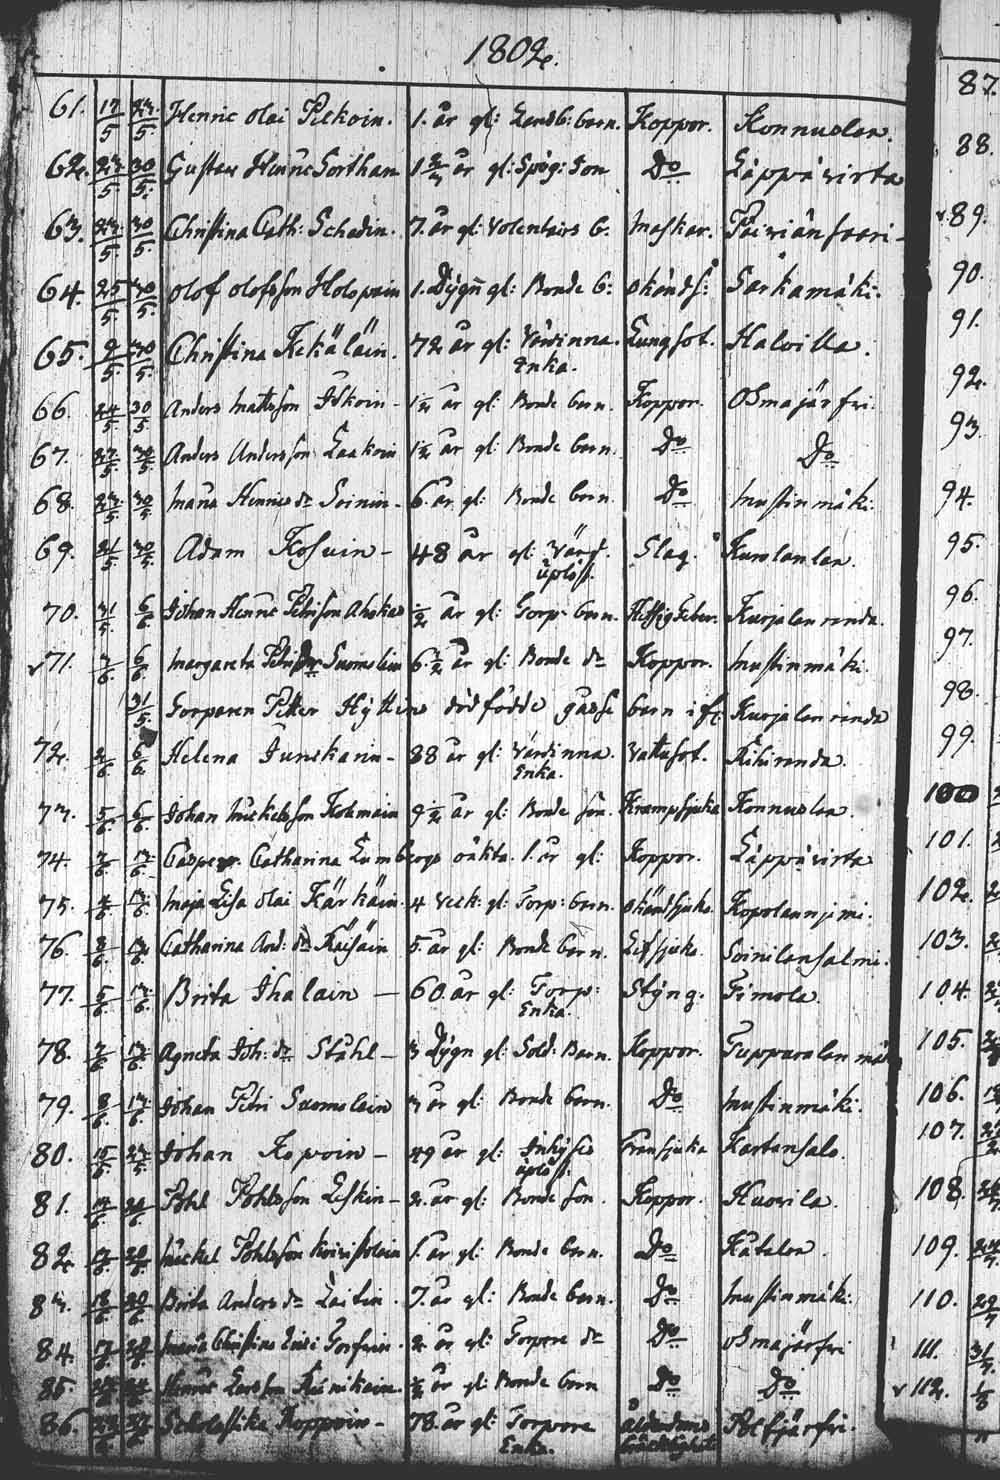 1802.
61. 17/5 23/5 Henric Olai Pitkoin. 1. år gl: Landb: barn. Koppor. Konnuslax.
62. 23/5 30/5 Gustav Henric Forthan 1 år gl: Son Do Läppävirta
63. 23/5 30/5 Christina Cath: Schadin. 7. år gl: Volentairs b. Maskar. Päiviänsaari
64. 25/5 30/5 Olof Olofsson Holopain 1. Dygn gl: Bonde b: okänd s: Sarkamäki.
65. 9/5 30/5 Christina Kekäläin. 72 år gl: Värdinna Lungsot. Halvilla.
Enka.
66. 24/5 30/5 Anders Mattsson Itkoin - 1 1/2 år gl: Bonde barn. Koppor. Osmajärfvi.
67. 27/5 30/5 Anders Andersson Laakoin 1 1/2 år gl: Bonde barn. Do Do
68. 23/5 30/5 Maria Henrics dr Soinin - 6. år gl: Bonde barn. Do Mustinmäki
69. 21/5 30/5 Adam Kosuin - 48 år gl: Värd. Slag. Kurolanlax.
70. 31/5 6/6 Johan Henric Petrison 1/2 år gl: Torp. barn. Hettsig Feber. Kurjalanranda.
71. 3/6 6/6 Margareta Petri dr Suomalain 6 1/2 år gl: Bonde dr Koppor. Mustinmäki
31/5 Torparen Petter Hyttins dödfödde gosse barn Kurjalanranda
72. 2/6 6/6 Helena Junskain - 88 år gl: Värdinna Vattusot. Riihiranda.
Enka.
73. 5/6 6/6 Johan Mickelsson Kolmain 9 1/2 år gl: Bonde son. Krampsjuka Konnuslax.
74. 7/6 13/6 Casper Catharina Lumbergs oäkta 1. år gl: Koppor. Läppävirta
75. 4/6 13/6 Maja Lisa Olai Kärkäin. 4 Veck: gl: Torp: barn. okänd sjuka Kopolanniemi.
76. 8/6 13/6 Catharina And: dr Räisäin 5. år gl: Bonde barn. Soinilansalmi.
77. 5/6 13/6 Brita Ihalain - 60. år gl: Torp: Styng. Timola.
Enka.
78. 7/6 13/6 Agneta Joh: dr Ståhl - 3 Dygn gl: Sold: Barn. Koppor. Tuppuralanmäki
79. 8/6 13/6 Johan Petri Suomalain 3 år gl: Bonde barn. Do Mustinmäki.
80. 15/5 23/5 Johan Kopoin - 49 år gl: Inhyses Fransjuka Kartansalo.
81. 14/6 20/6 Påhl Påhlsson Leskin - 2. år gl: Bonde son. Koppor. Huovila.
82. 17/6 20/6 Mickel Påhlsson Koivistolain 1. år gl: Bonde barn. Do Kätalax.
83. 18/6 20/6 Brita Anders dr Laitin. 7. år gl: Bonde barn. Do Mustinmäki:
84. Maria Christina 2 år gl: Torpare dr Do Osmajärfvi
85. Henric Larsson 1/2 år gl: Bonde barn Do Do
86. Scholastika Koppoin - 78. år gl: Torpare Ålderdoms
Enka. bräcklighet
87.
88.
89.
90.
91.
92.
93.
94.
95.
96.
97.
98.
99.
100
101.
102.
103.
104.
105.
106.
107.
108.
109.
110.
111.
112.